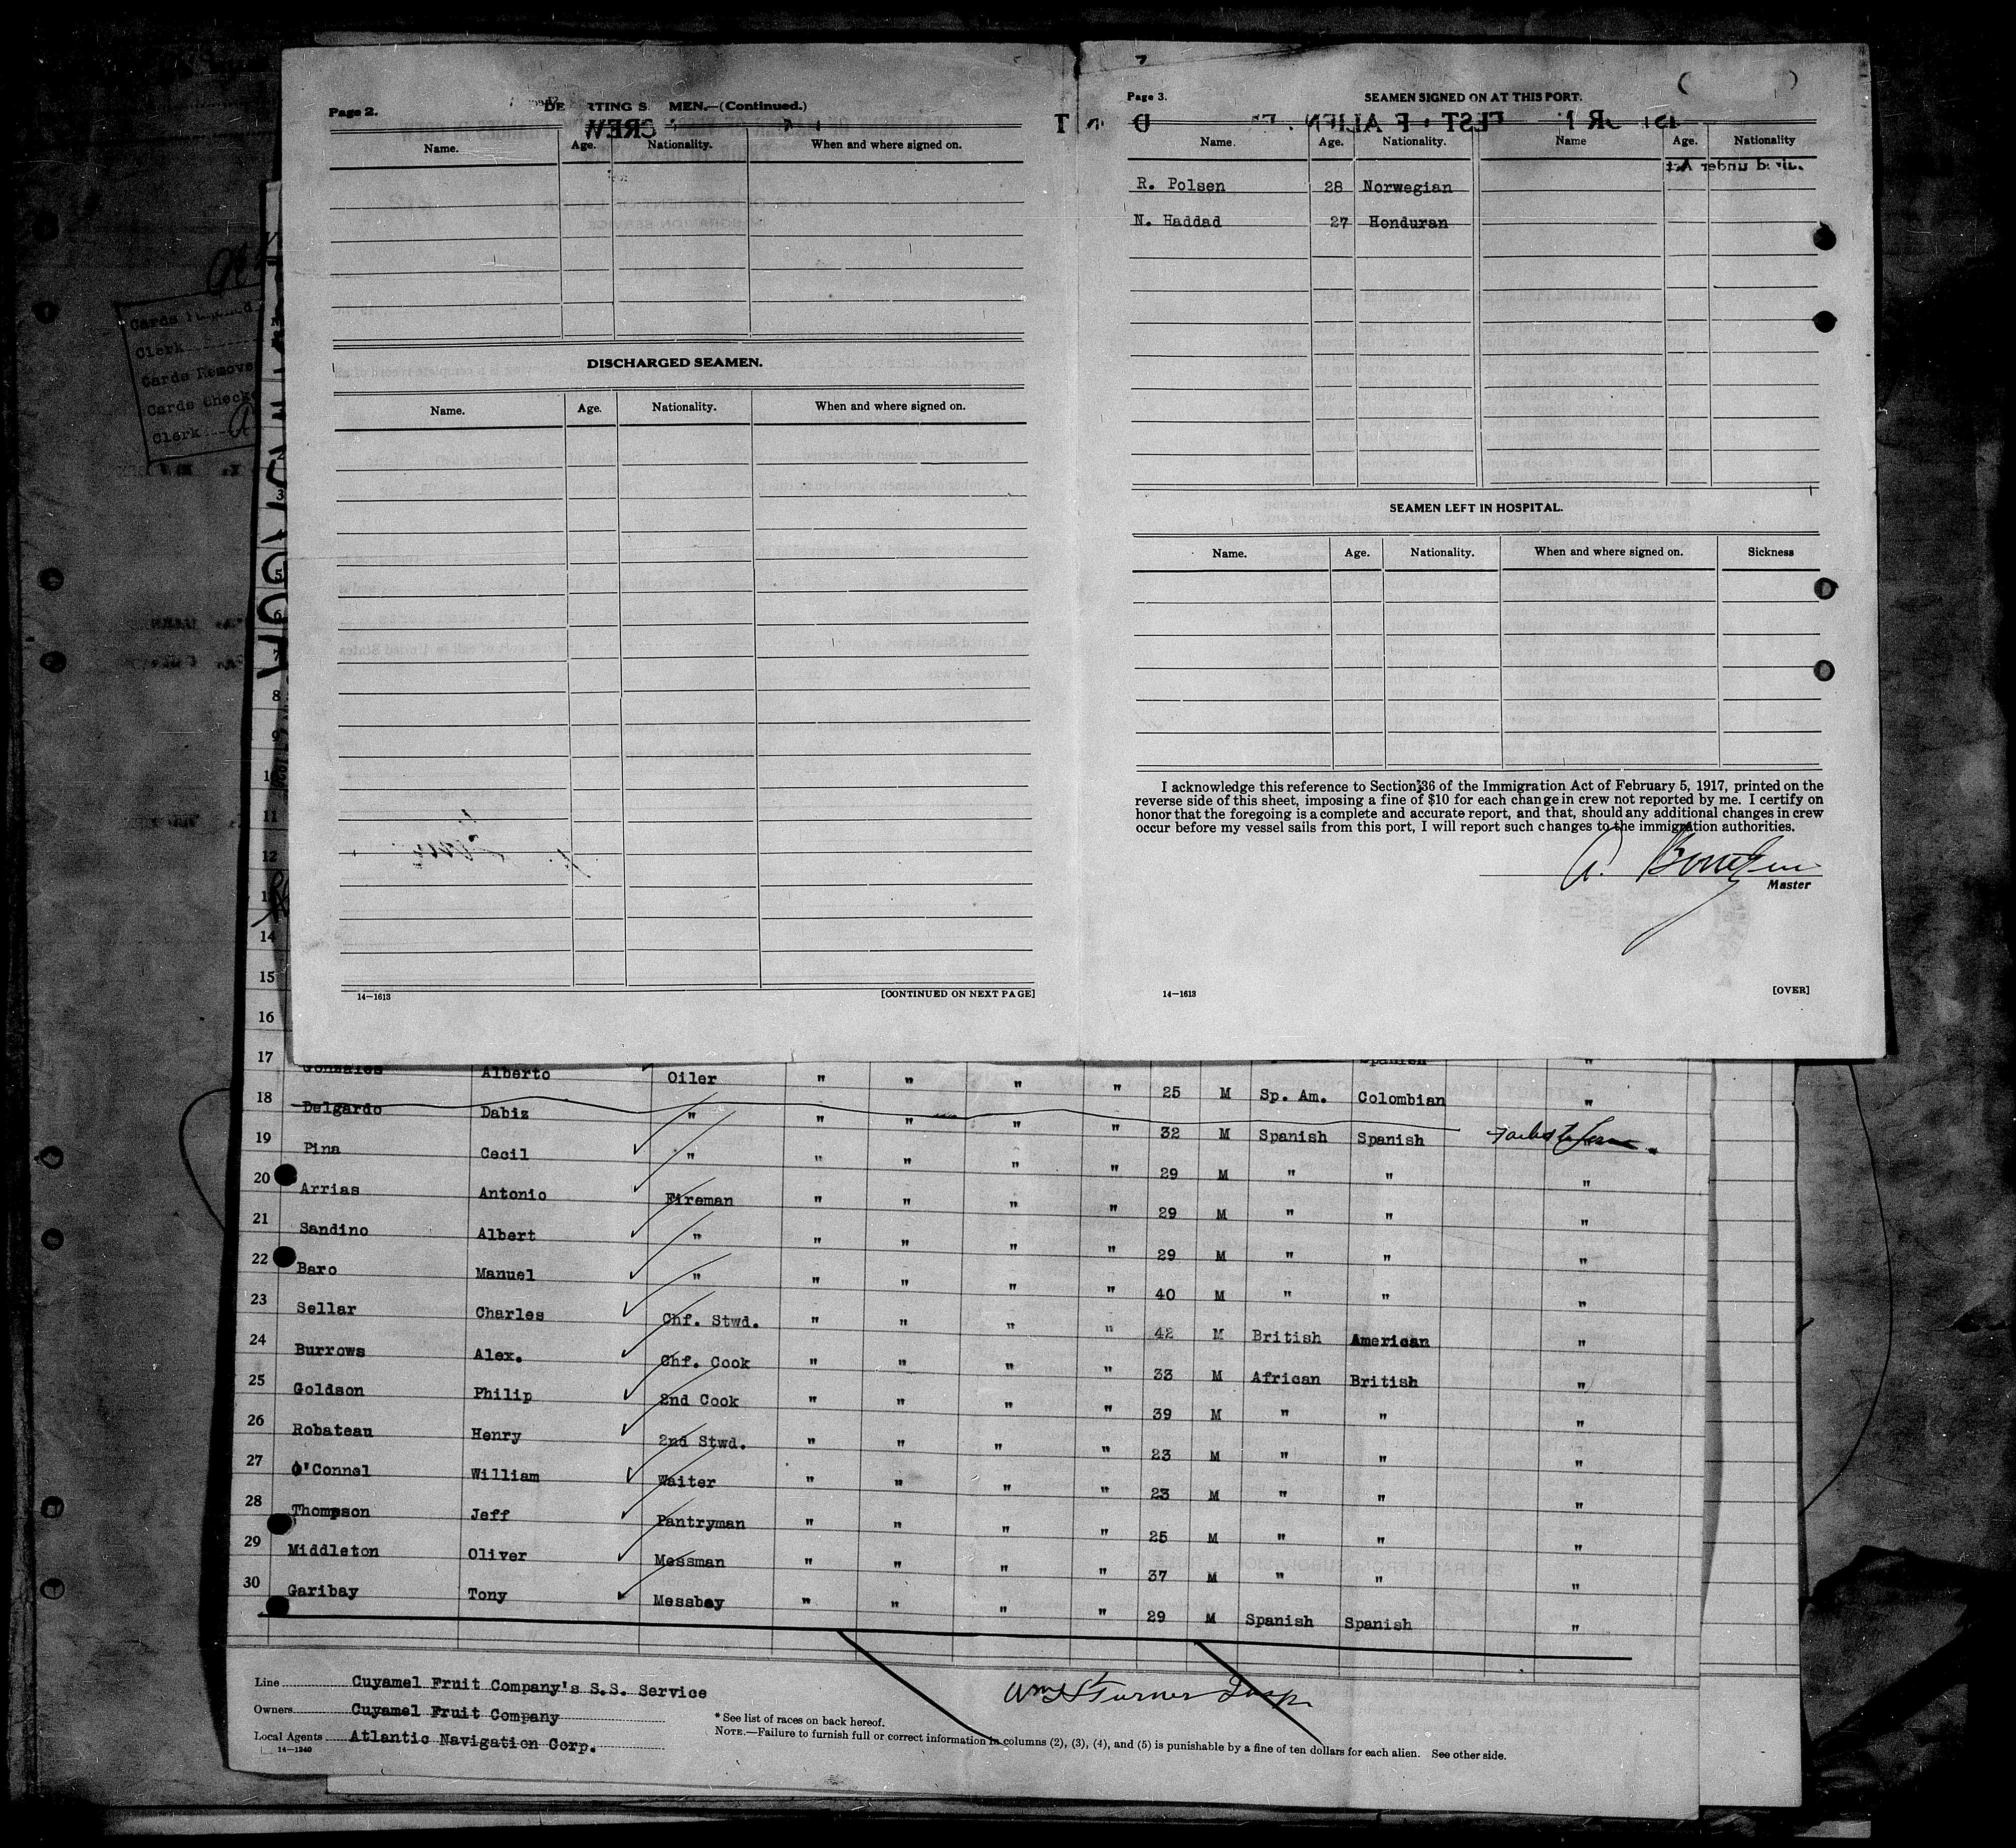 Page 2.
MEN.—(Continued.)
Name. Age. Nationality. When and where signed on.
DISCHARGED SEAMEN.
Name. Age. Nationality. When and where signed on.
14—1613 [CONTINUED ON NEXT PAGE]
Page 3.
SEAMEN SIGNED ON AT THIS PORT.
Name. Age. Nationality. Name Age. Nationality
R. Polsen 28 Norwegian
N. Haddad 27 Honduran
SEAMEN LEFT IN HOSPITAL.
Name. Age. Nationality. When and where signed on. Sickness
I acknowledge this reference to Section 36 of the Immigration Act of February 5, 1917, printed on the
reverse side of this sheet, imposing a fine of $10 for each change in crew not reported by me. I certify on
honor that the foregoing is a complete and accurate report, and that, should any additional changes in crew
occur before my vessel sails from this port, I will report such changes to the immigration authorities.
Master
14—1613 [OVER]
Cards
Clerk
Cards Remove
Cards Check
Clerk
3
5
6
7
8
9
10
11
12
13
14
15
16
17 Spanish "
18 Gonzales Alberto Oiler " " " " 25 M Sp. Am. Colombian "
19 Delgardo Dabiz " " " " " 32 M Spanish Spanish
20 Pina Cecil " " " " " 29 M " " "
21 Arrias Antonio Fireman " " " " 29 M " " "
22 Sandino Albert " " " " " 29 M " " "
23 Baro Manuel " " " " " 40 M " " "
24 Sellar Charles Chf. Stwd. " " " " 42 M British American "
25 Burrows Alex. Chf. Cook " " " " 33 M African British "
26 Goldson Philip 2nd Cook " " " " 39 M " " "
27 Robateau Henry 2nd Stwd. " " " " 23 M " " "
28 O'Connel William Waiter " " " " 23 M " " "
29 Thompson Jeff Pantryman " " " " 25 M " " "
30 Middleton Oliver Messman " " " " 37 M " " "
Garibay Tony Messboy " " " " 29 M Spanish Spanish "
Line Cuyamel Fruit Company's S.S. Service
Owners Cuyamel Fruit Company
Local Agents Atlantic Navigation Corp.
14—1240
Wm H Turner Insp.
* See list of races on back hereof.
NOTE.—Failure to furnish full or correct information in columns (2), (3), (4), and (5) is punishable by a fine of ten dollars for each alien. See other side.